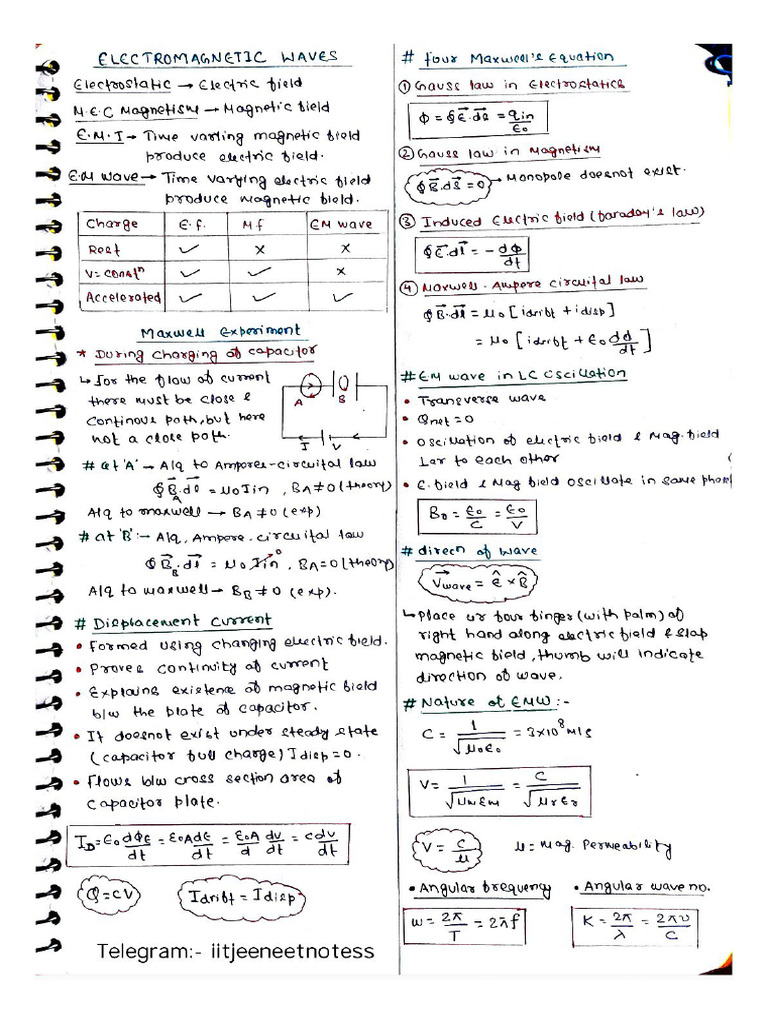 ELECTROMAGNETIC WAVES
Electrostatic → Electric field
M.E.C Magnetism → Magnetic field
E.M.I → Time varting magnetic field
produce electric field.
E.M wave → Time varying electric field
produce magnetic field.
Charge E.f. Mf EM wave
Rest ✓ x x
V = constⁿ ✓ ✓ x
Accelerated ✓ ✓ ✓
Maxwell Experiment
* During charging of capacitor
↳ for the flow of current
there must be close &
continous path, but here
not a close path.
A B
I V
# at 'A' → Alq to Amperes-circuital law
∮B⃗_A.dl⃗ = μ0 Iin , BA ≠ 0 (theory)
Alq to maxwell → BA ≠ 0 (exp)
# at 'B' :- Alq, Ampere. circuital law
∮B⃗_B.dl⃗ = μ0 Iin⁰ , BA = 0 (theory)
Alq to maxwell → BB ≠ 0 (exp).
# Displacement current
• formed using changing electric field.
• Proves continuity of current
• Explains existene of magnetic field
b/w the plate of capacitor.
• It doesnot exist under steady state
(capacitor full charge) I disp = 0.
• flows b/w cross section area of
capacitor plate.
ID = ε0 dφE/dt = ε0Adε/dt = ε0A/d dv/dt = cdv/dt
Q = CV
Idrift = I disp
Telegram:- iitjeeneetnotess
# four Maxwell's Equation
① Gauss law in Electrostatics
Φ = ∮E⃗.ds⃗ = qin/ε0
② Gauss law in Magnetism
∮B⃗.ds⃗ = 0 → Monopole doesnot exist.
③ Induced Electric field (faraday's law)
∮E⃗.dl⃗ = - dΦ/dt
④ Maxwell - Ampere circuital law
∮B⃗.dl⃗ = μ0 [idrift + idisp]
= μ0 [idrift + ε0 dϕ/dt]
# EM wave in LC Oscillation
• Transverse wave
• Qnet = 0
• Oscillation of electric field & Mag. field
Lar to each other
• E. field & Mag field oscillate in same phas
B0 = E0/C = E0/V
# direcn of wave
V⃗wave = Ê × B̂
↳ Place ur four finger (with palm) of
right hand along electric field & slap
magnetic field, thumb will indicate
direction of wave.
# Nature of EMW :-
C = 1/√μ0ε0 = 3×10⁸ m/s
V = 1/√μmεm = C/√μrεr
V = C/μ μ = Mag. Permeability
• Angular frequency • Angular wave no.
w = 2π/T = 2πf K = 2π/λ = 2πυ/C